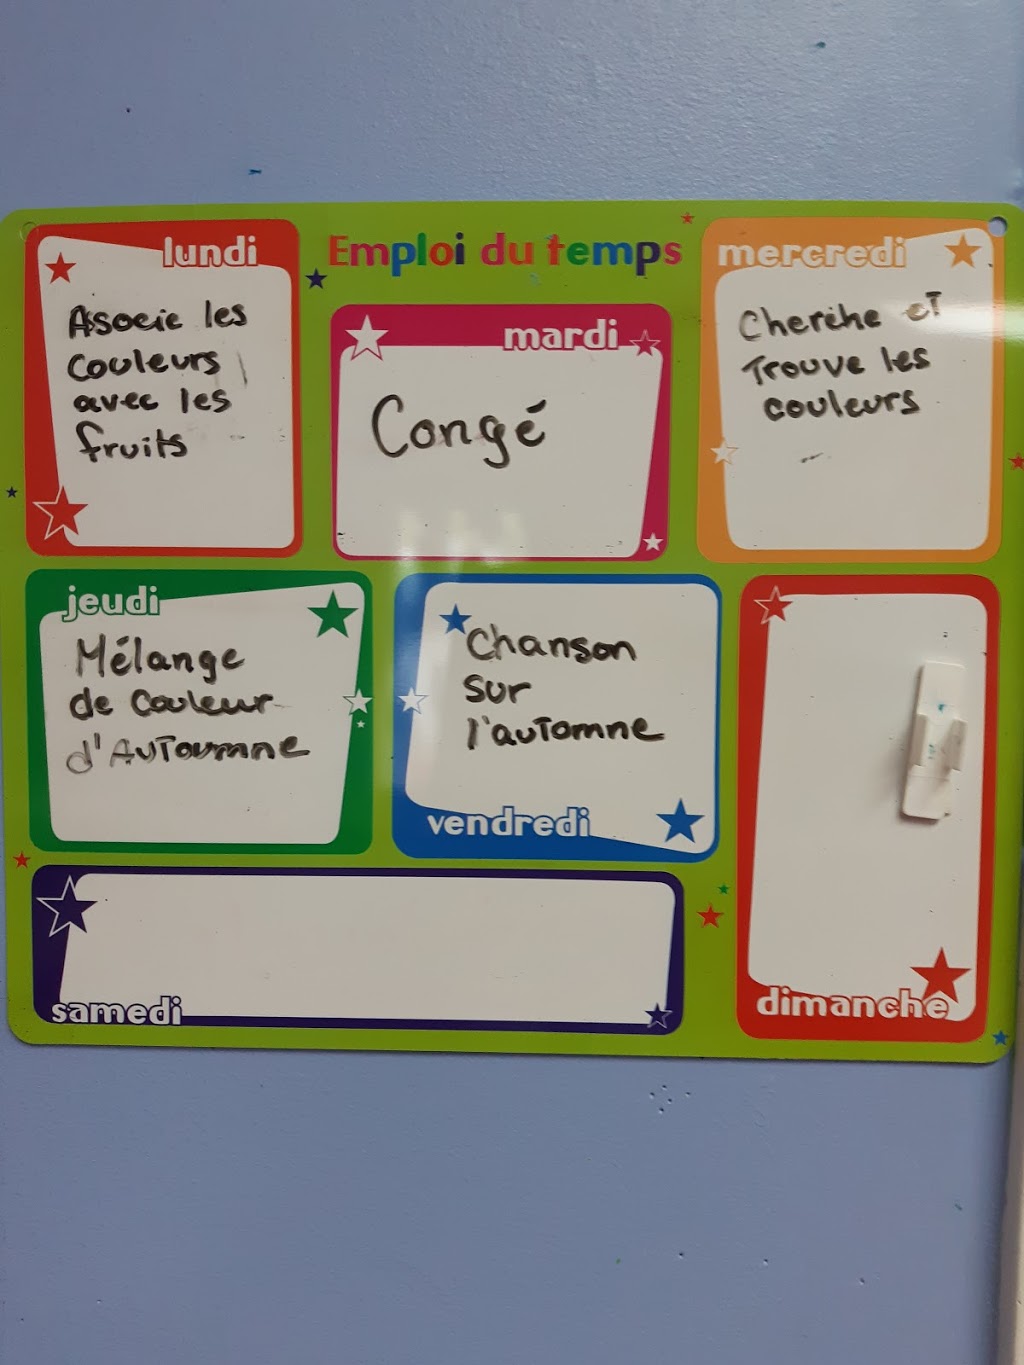 Emploi du temps
lundi
Asocie les
couleurs
avec les
fruits
mardi
Congé
mercredi
Cherche et
Trouve les
couleurs
jeudi
Mélange
de couleur
d'Automne
Chanson
sur
l'automne
vendredi
samedi
dimanche